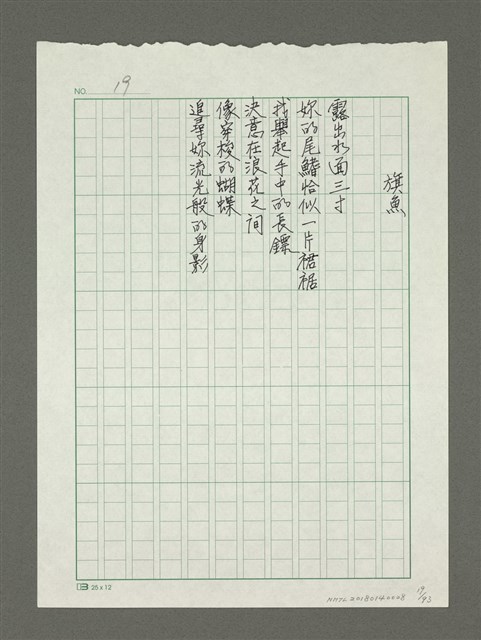 NO. 19
旗魚
露出水面三寸
妳的尾鰭恰似一片裙裾
我舉起手中的長鏢
決意在浪花之间
像穿梭的蝴蝶
追尋妳流光般的身影
25 x 12
NMTL 20180140008
19/93